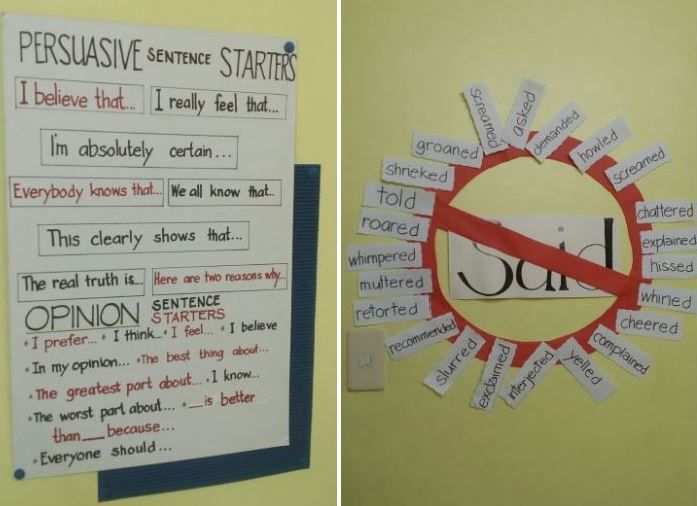 PERSUASIVE SENTENCE STARTERS
I believe that... I really feel that...
I'm absolutely certain...
Everybody knows that... We all know that..
This clearly shows that...
The real truth is... Here are two reasons why...
OPINION SENTENCE STARTERS
• I prefer... • I think... • I feel... • I believe
• In my opinion... • The best thing about...
• The greatest part about... • I know...
• The worst part about... • __ is better
than __ because...
• Everyone should...
Said
screamed
asked
demanded
howled
screamed
chattered
explained
hissed
whined
cheered
complained
yelled
interjected
exclaimed
slurred
recommended
retorted
muttered
whimpered
roared
told
shrieked
groaned